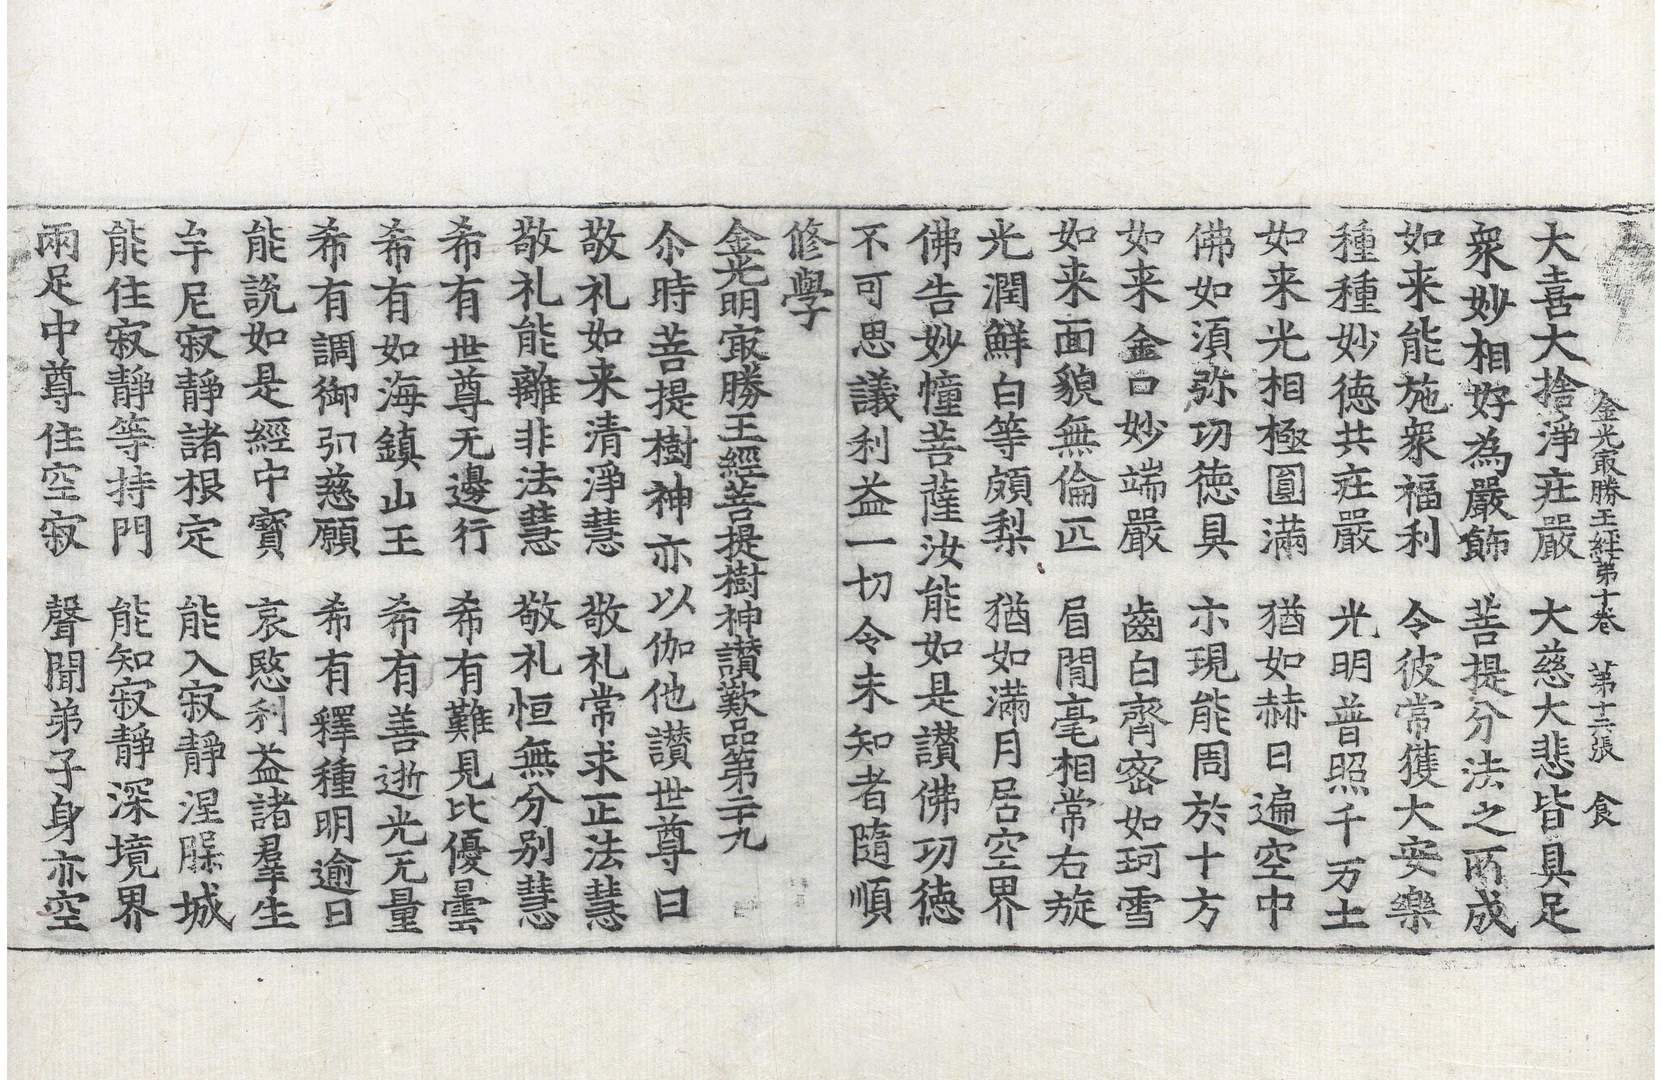 金光㝡勝王經第十卷　第十六張　食
大喜大捨淨疰嚴　大慈大悲皆具足
衆妙相好為嚴飾　菩提分法之所成
如来能施衆福利　令彼常獲大安樂
種種妙徳共疰嚴　光明普照千万土
如来光相極圓滿　猶如赫日遍空中
佛如須弥功徳具　示現能周於十方
如来金口妙端嚴　齒白齊密如珂雪
如来面貌無倫匹　眉閒毫相常右旋
光潤鮮白等頗梨　猶如滿月居空界
佛告妙幢菩薩汝能如是讃佛功徳
不可思議利益一切令未知者隨順
修學
金光明㝡勝王經菩提樹神讃歎品第二十九
尒時菩提樹神亦以伽他讃世尊曰
敬礼如来清淨慧　敬礼常求正法慧
敬礼能離非法慧　敬礼恒無分別慧
希有世尊无邊行　希有難見比優曇
希有如海鎮山王　希有善逝光无量
希有調御弘慈願　希有釋種明逾日
能說如是經中寳　哀愍利益諸羣生
牟尼寂靜諸根定　能入寂靜涅槃城
能住寂靜等持門　能知寂靜深境界
兩足中尊住空寂　聲聞弟子身亦空